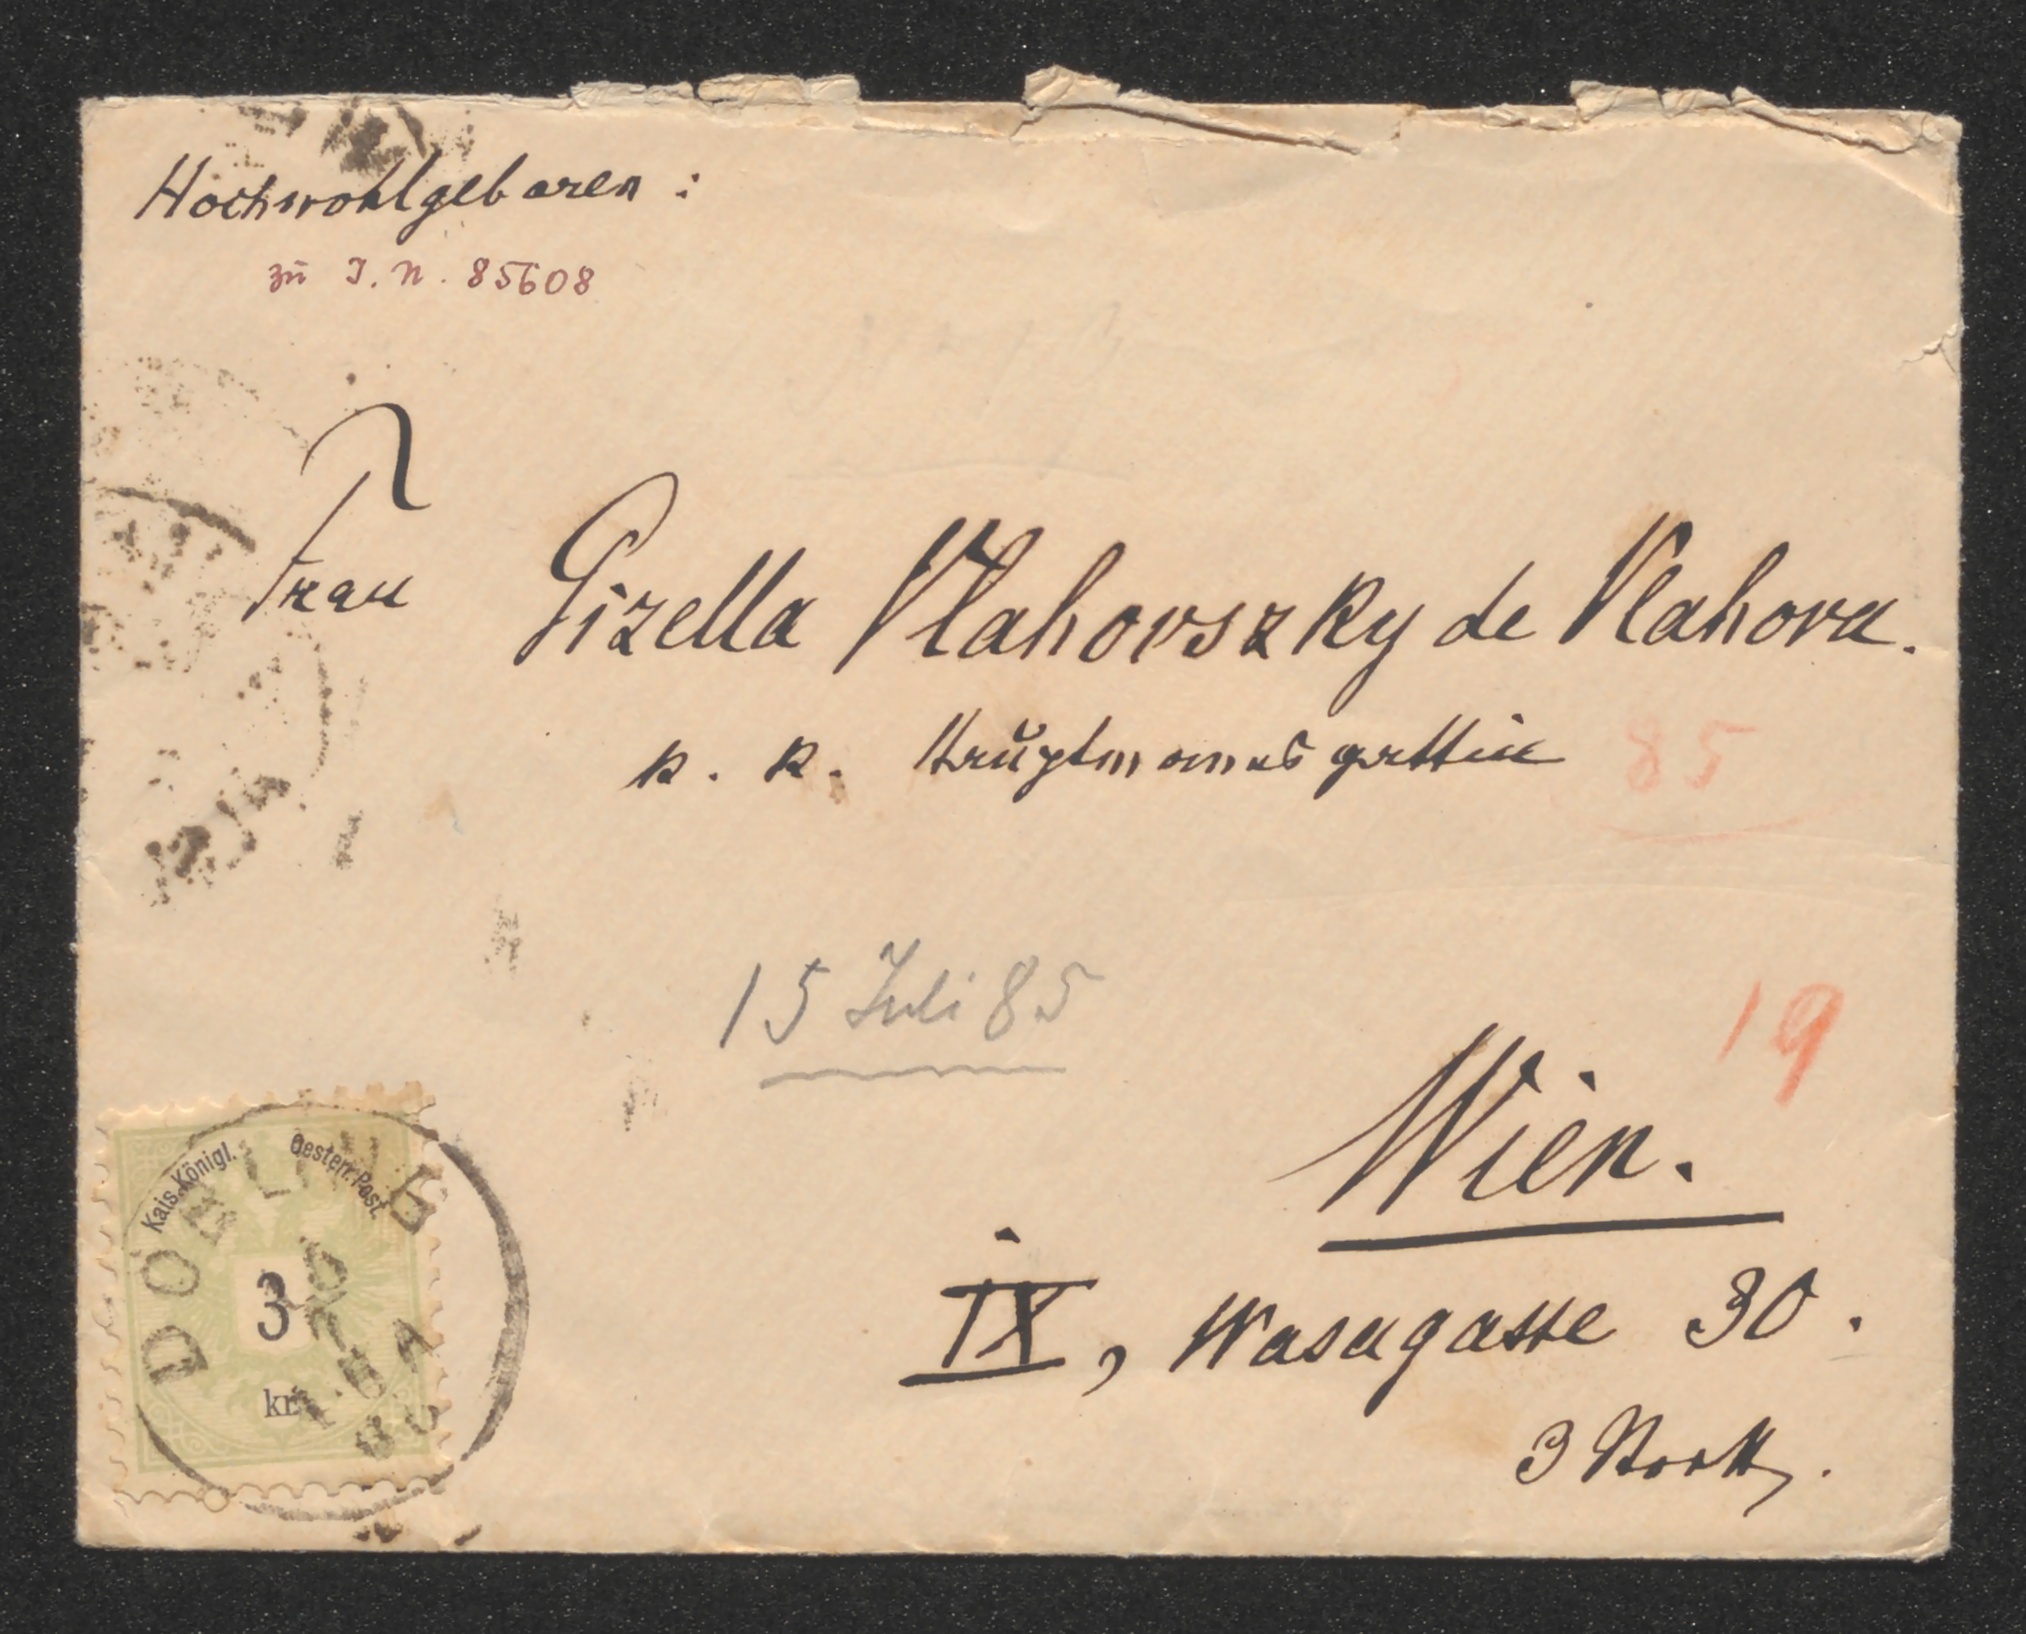 Hochwohlgeboren :
zu I. N. 85608
Frau Gizella Vlahovszky de Vlahova.
k. k. Hauptmannsgattin
85
15 Juli 85
19
Wien.
IX, Wasagasse 30.
3 Stock.
Kais. Königl. Oesterr. Post.
3
kr.
DÖBLING